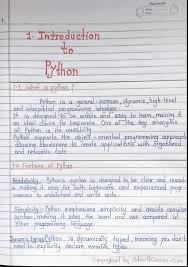 1.
1. Introduction
to
Python
1.1. What is python ?
Python is a general-purpose, dynamic, high-level
and interpreted programming language.
It is designed to be simple and easy to learn, making it
an ideal choice for beginners. One of the key strengths
of Python is its versatility.
Python supports the object-oriented programming approach
allowing developers to create applications with organized
and reusable code.
1.2 Features of Python
Readability:- Python's syntax is designed to be clear and
making it easy for both beginners and experienced
to understand and write code.
Simplicity:- Python emphasizes simplicity and avoids complex
syntax, making it easy for learn and use compared to
other programming language.
Dynamic typing:- Python is dynamically typed, meaning you don't
need to explicitly declare variable
Copyrighted by